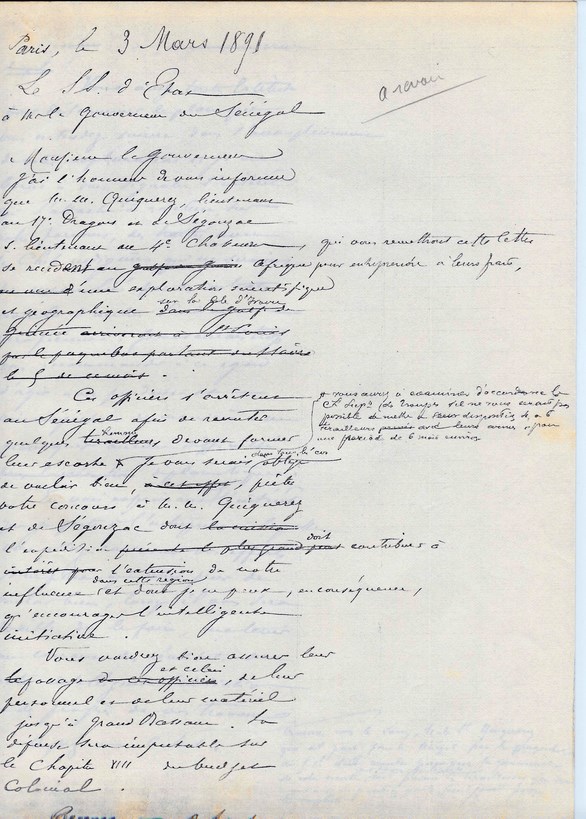 Paris, le 3 Mars 1891
a revoir
Le S.S. d'Etat
à M. le Gouverneur du Sénégal
Monsieur le Gouverneur
J'ai l'honneur de vous informer
que M.M. Quiquerez, lieutenant
au 17e Dragons et de Ségonzac
s. lieutenant au 4e Chasseurs, qui vous remettront cette lettre
se rendent au Afrique pour entreprendre à leurs frais,
d'une exploration scientifique
sur la Côte d'Ivoire
et géographique dans le golfe de
Guinée arriveront à St Louis
par le paquebot partant de
le 5 de ce mois.
Ces officiers s'arrêteront
au Sénégal afin de recruter
hommes
quelques tirailleurs devant former
leur escorte. Je vous serais obligé
vous aurez à examiner d'accord avec le
possible de mettre à leur disposition 4 à 6
tirailleurs avec leurs armes pour
une période de 6 mois environ
de vouloir bien, à cet effet, prêter
votre concours à M.M. Quiquerez
et de Ségonzac dont la mission
doit
l'expédition contribuer à
intérêt pour l'extension de notre
dans cette région
influence et dont je ne peux, en conséquence,
qu'encourager l'intelligente
initiative.
Vous voudrez bien assurer leur
et celui
passage de ces officiers, de leur
personnel et de leur matériel
jusqu'à Grand Bassam. La
dépense sera imputable sur
le Chapitre XIII du budget
Colonial.